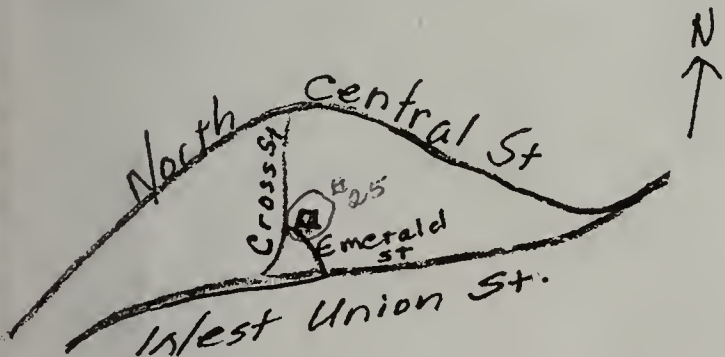 N
North Central St
Cross St
#25
Emerald
st
West Union St.